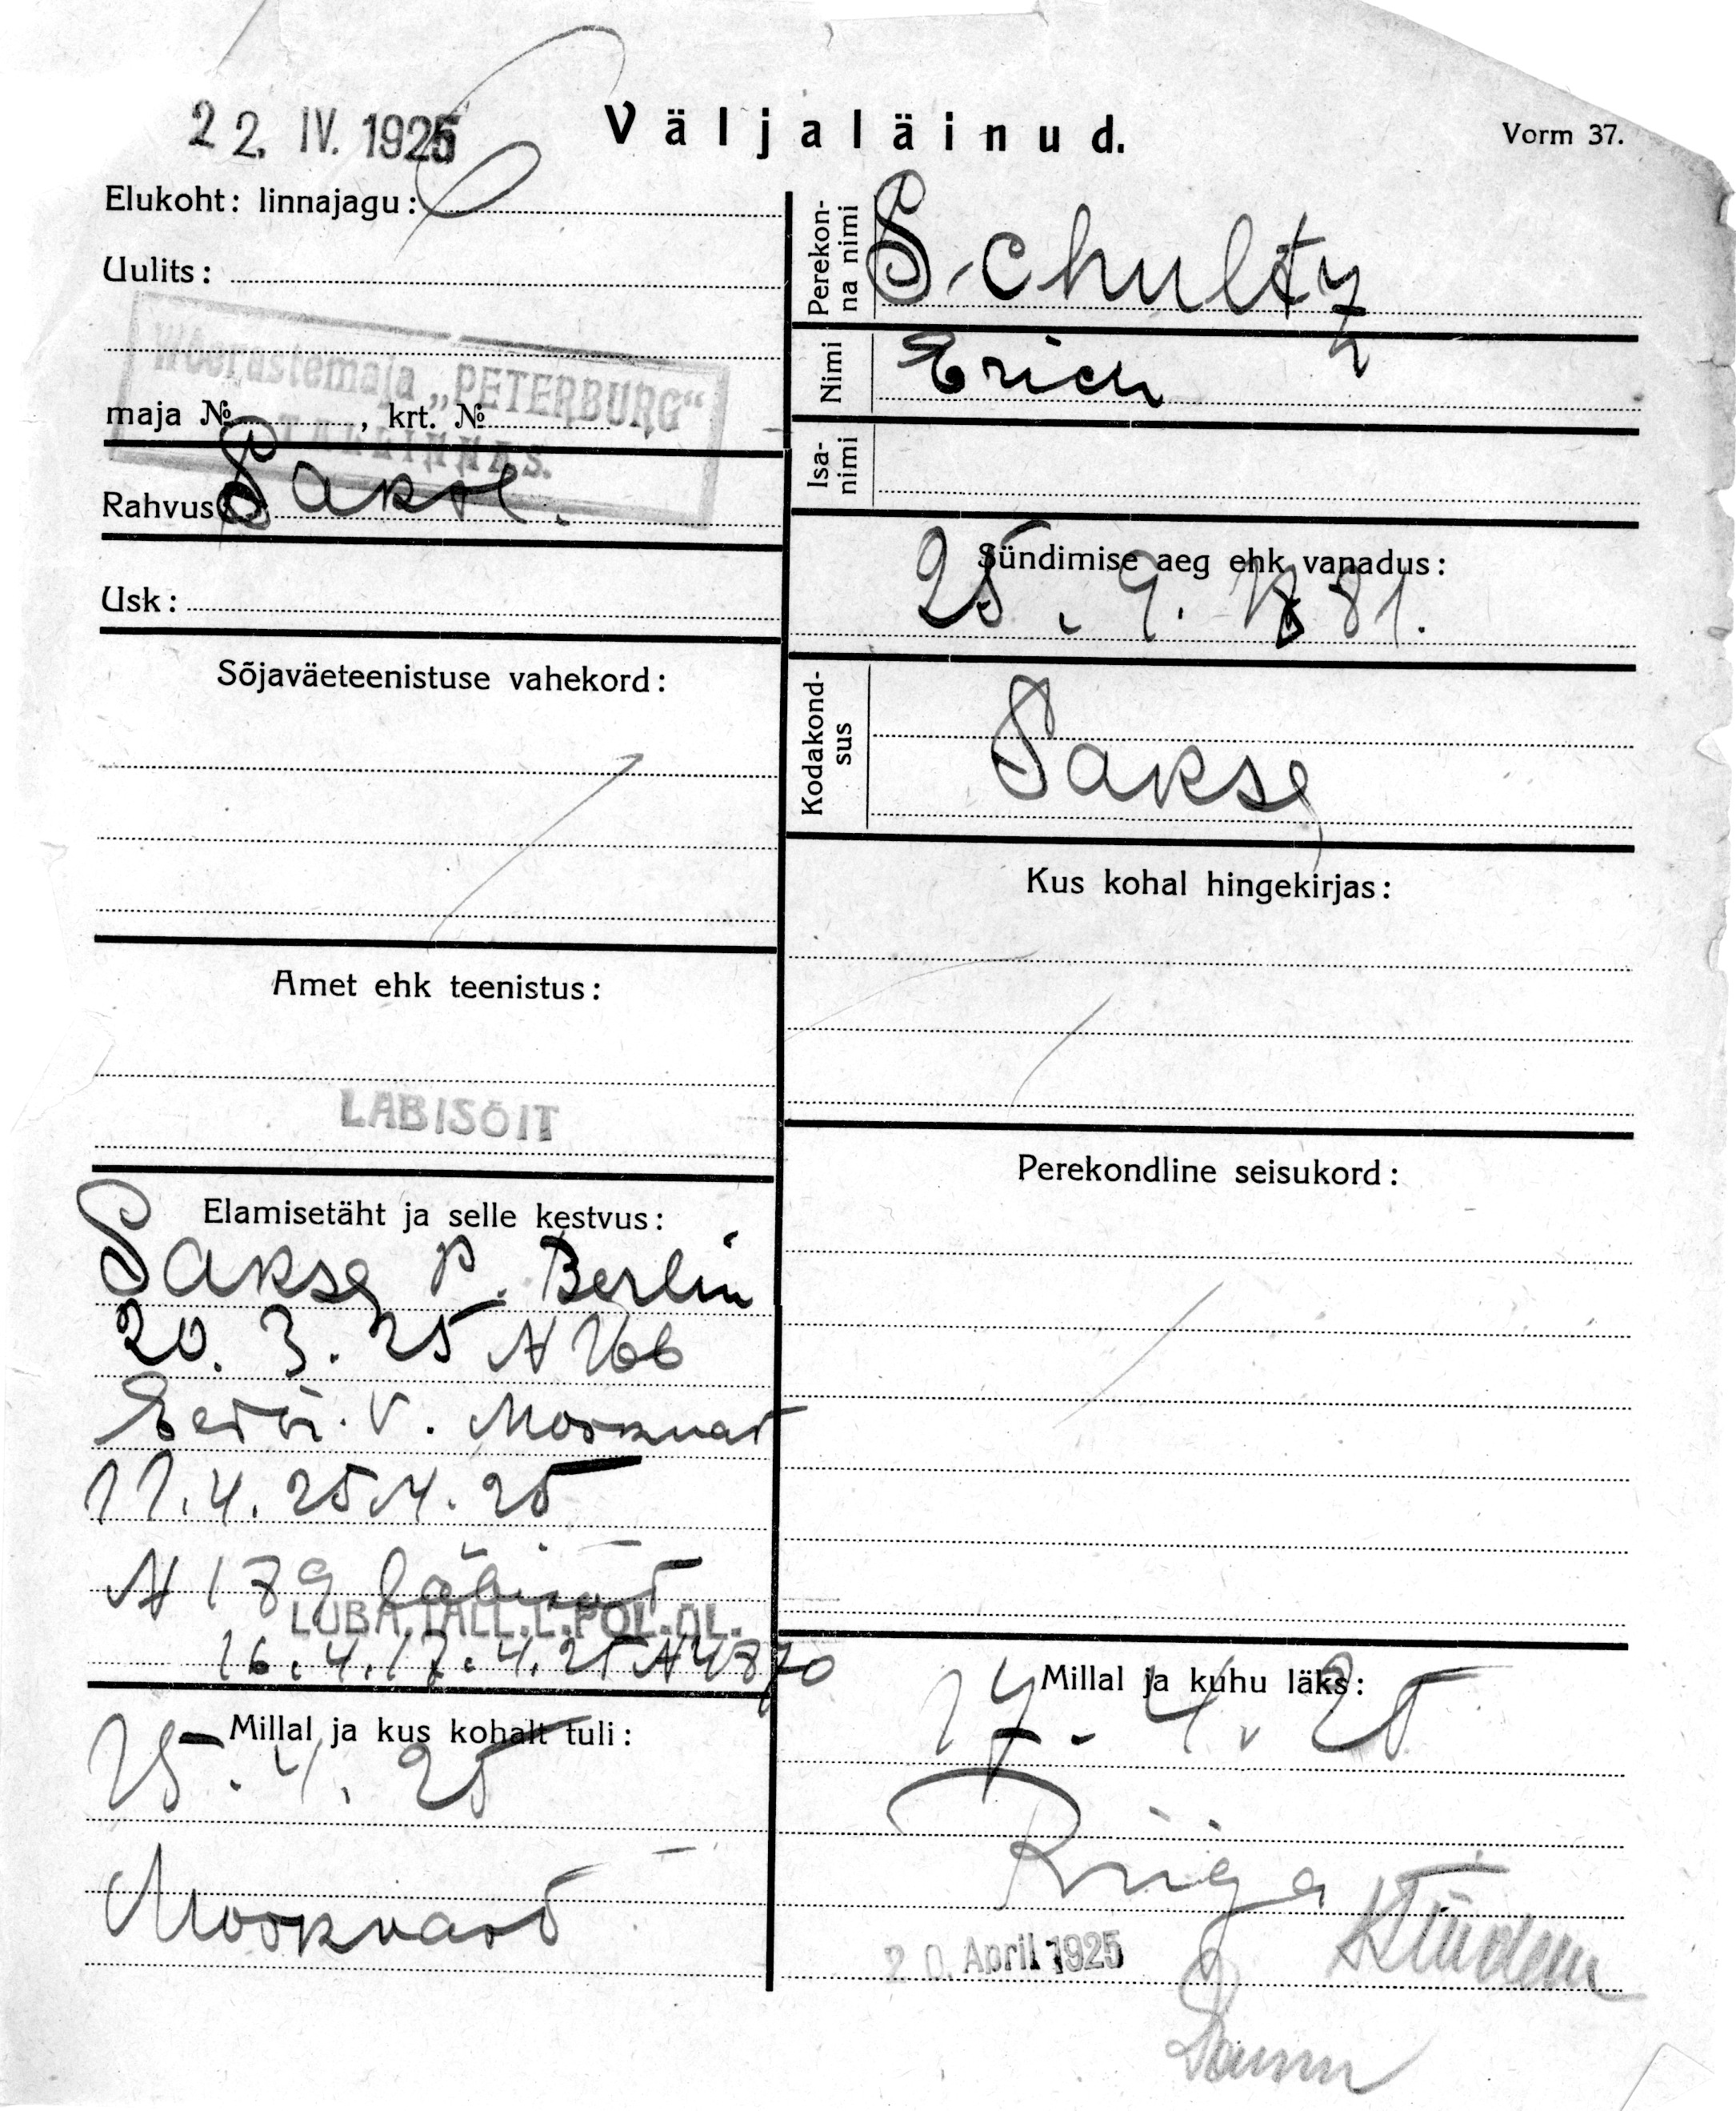 22. IV. 1925
Väljaläinud.
Vorm 37.
Elukoht: linnajagu:
Uulits:
Wõerastemaja „PETERBURG“
TALLINNAS.
maja № , krt. №
Rahvus: Sakse.
Usk:
Sõjaväeteenistuse vahekord:
Amet ehk teenistus:
LABISÕIT
Elamisetäht ja selle kestvus:
Sakse p. Berlin
20. 3. 25 N 166
Eesti. V. Moskvas
11.4.25.4.25
N 179
LUBA TALL.L.POL.
16.4.17.4.25 N 4870
Millal ja kus kohalt tuli:
15.4.25
Moskvast
Perekon-
na nimi
Schultz
Nimi
Erich
Isa-
nimi
Sündimise aeg ehk vanadus:
25. 9. 1881.
Kodakond-
sus
Sakse
Kus kohal hingekirjas:
Perekondline seisukord:
Millal ja kuhu läks:
17. 4. 25
Riiga
20. April 1925